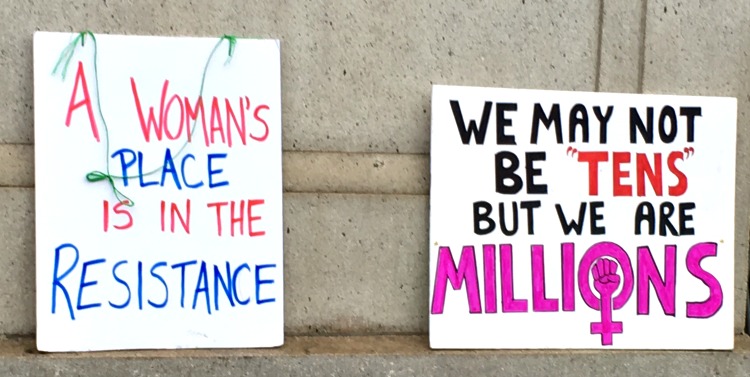 A WOMAN'S
PLACE
IS IN THE
RESISTANCE
WE MAY NOT
BE "TENS"
BUT WE ARE
MILLIONS